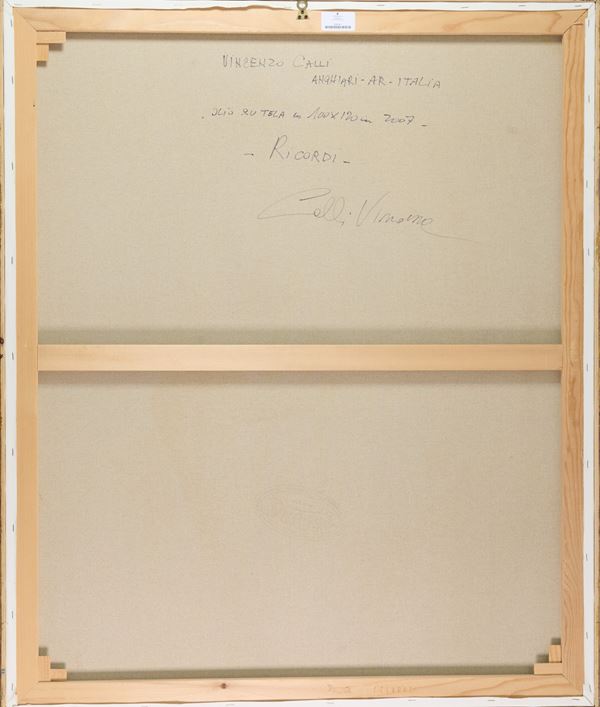 VINCENZO CALLI
ANGHIARI - AR - ITALIA
OLIO SU TELA cm 100X120cm 2007 -
- RICORDI -
Calli Vincenzo